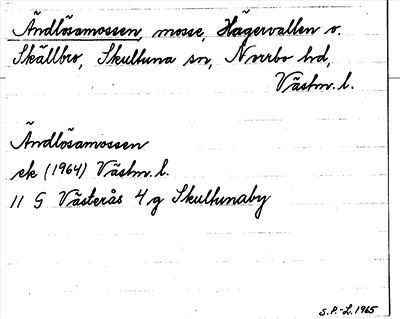 Ändlösamossen, mosse, Hagervallen o.
Skällbro, Skultuna sn, Norrbo hd,
Västm. l.
Ändlösamossen
ek (1964) Västm. l.
11 G Västerås 4 g Skultunaby
S.P.-L. 1965